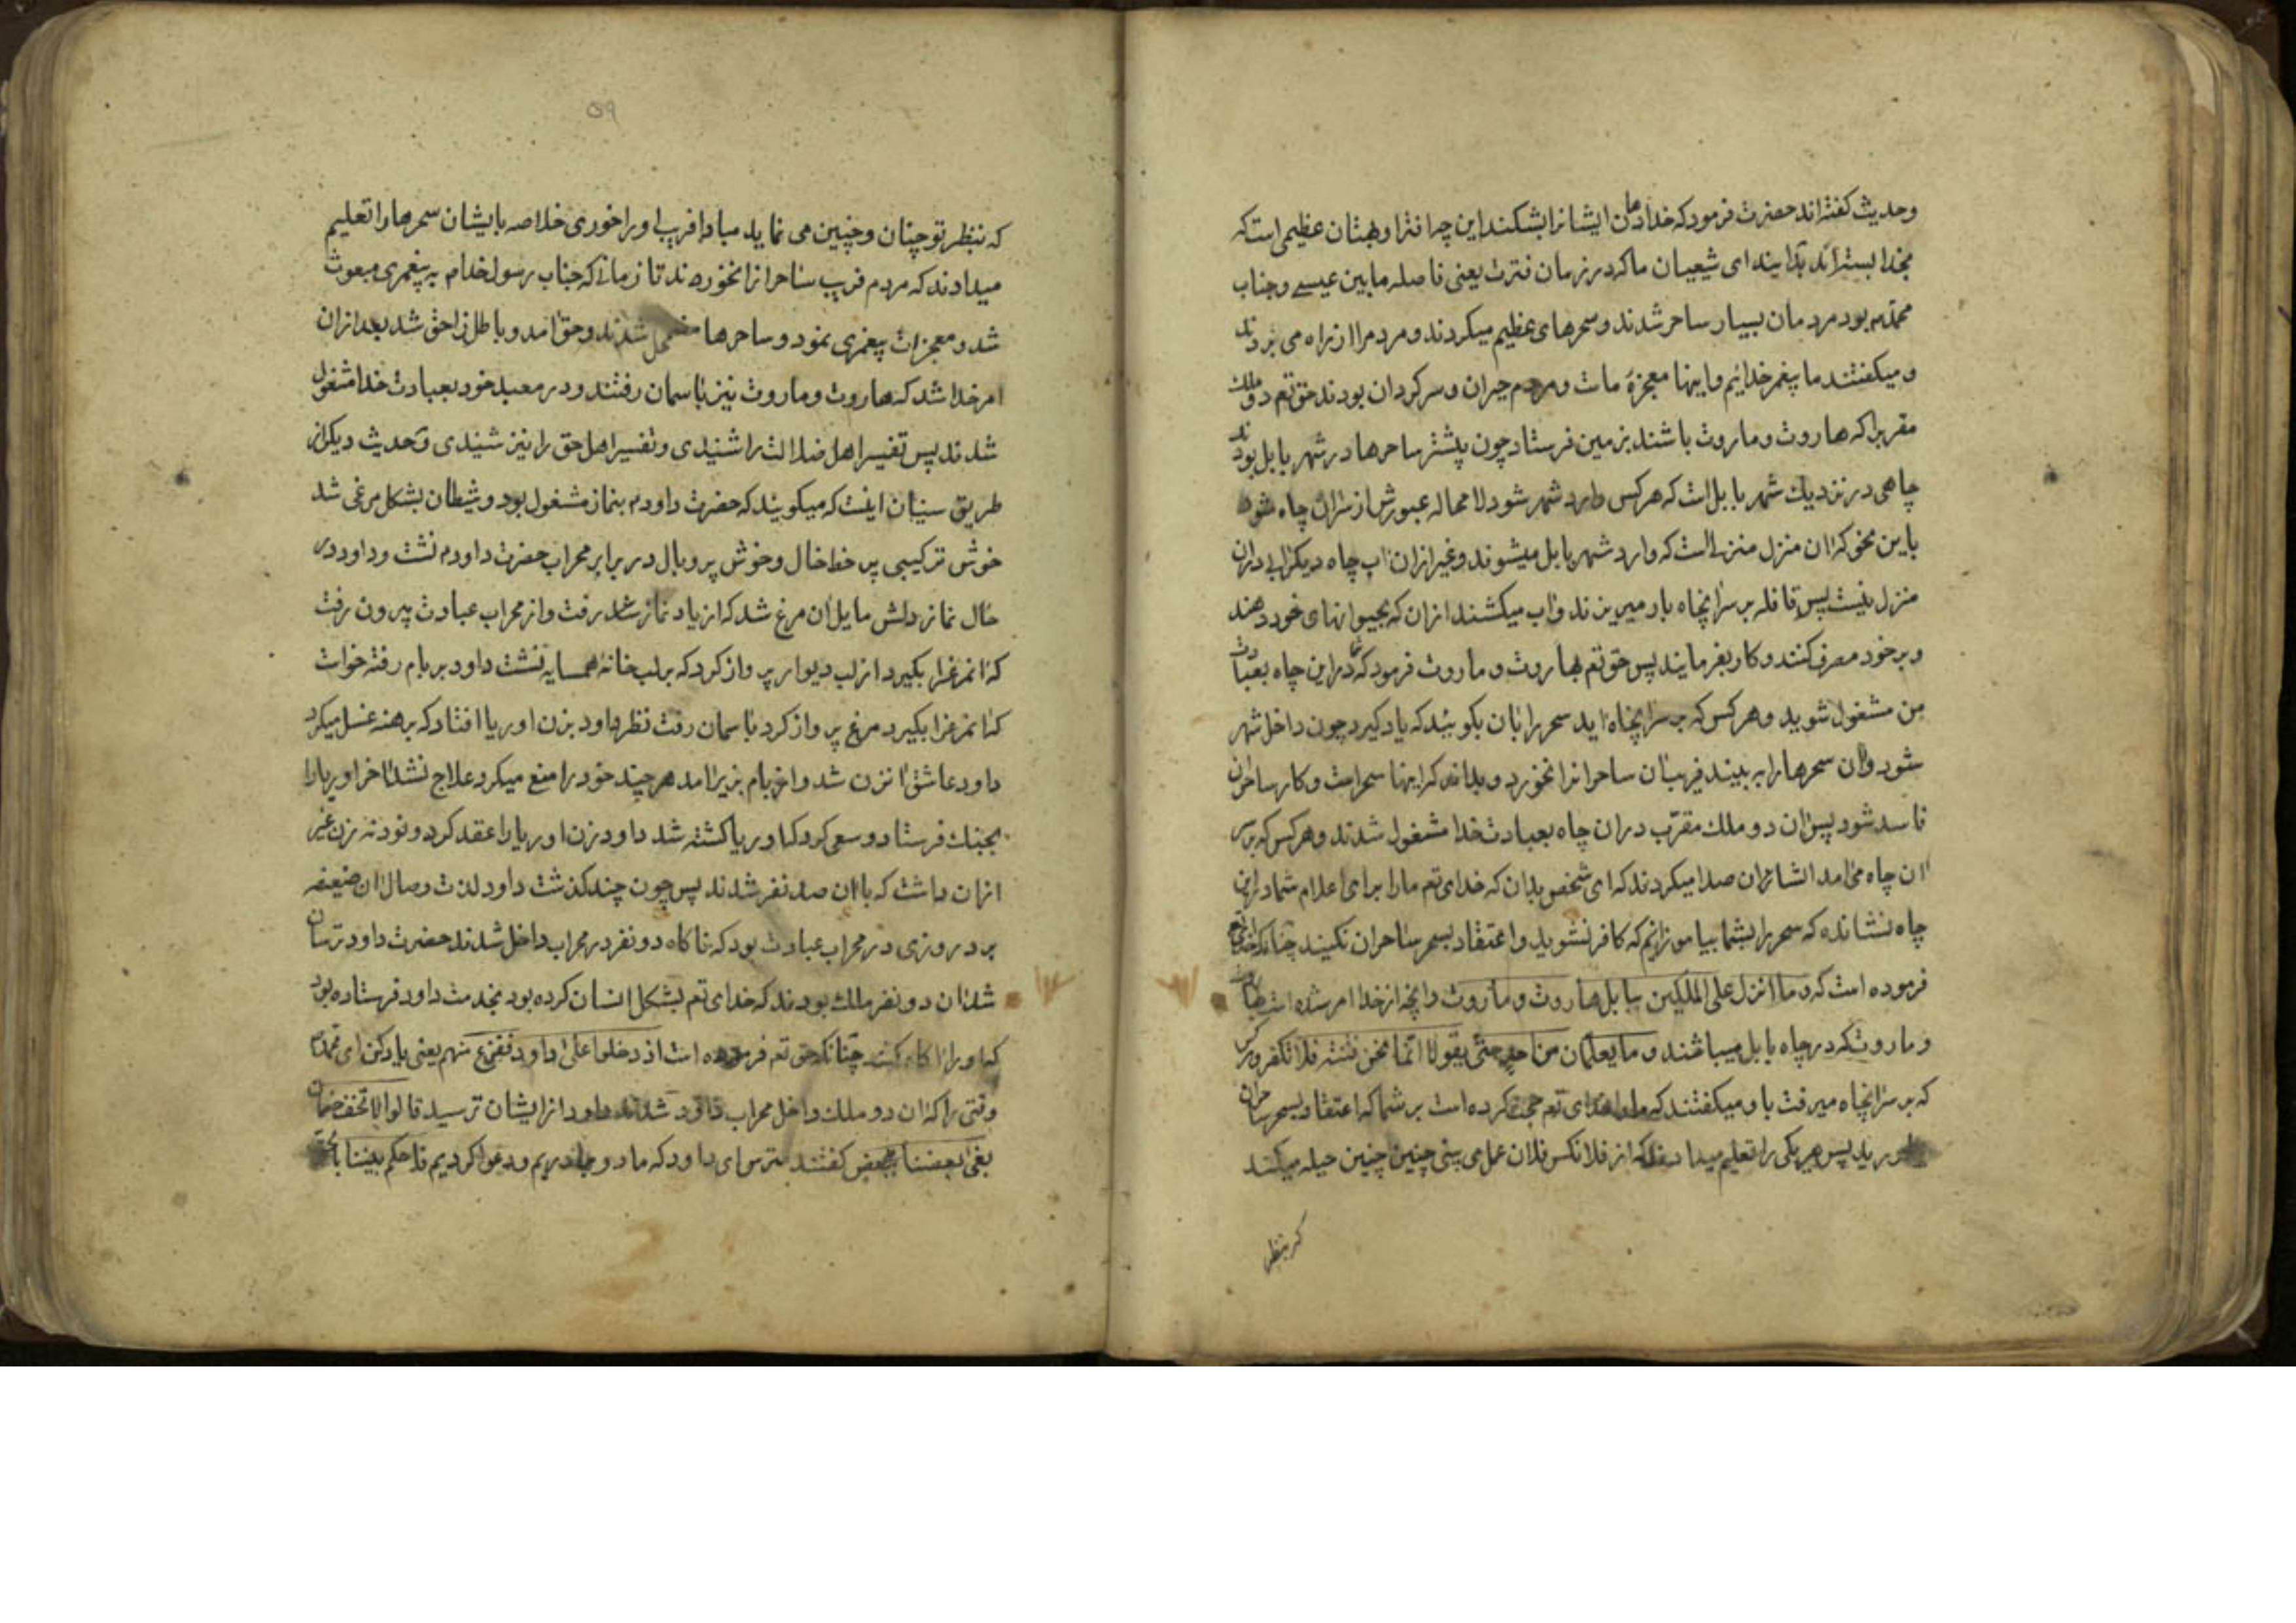 وحدیث کفته‌اند حضرت فرمود که خدا دهان ایشانرا بشکند این چه افترا و بهتان عظیمی است که
بخدا بسته‌اند بدانید ای شیعیان ما که در زمان فترت یعنی فاصله مابین عیسی و جناب
محمدم بود مردمان بسیار ساحر شدند و سحرهای عظیم میکردند و مردم را از راه می بردند
و میکفتند ما پیغمر خدائیم و اینها معجزۀ ماست و مردم حیران و سرکردان بودند حق تعم دو ملك
مقرب را که هاروت و ماروت باشند بزمین فرستاد چون پیشتر ساحرها در شهر بابل بودند
چاهی در نزدیك شهر بابل است که هر کس وارد شهر شود لا محاله عبورش از سر ان چاه شود
باین نحو که ان منزل منزلیست که وارد شهر بابل میشوند و غیر از ان اب چاه دیکر ابی در ان
منزل نیست پس قافله بر سر انچاه بار میریزند و اب میکشند از ان که بحیوانهای خود دهند
و بر خود مصرف کنند و کار بفرمایند پس حق تعم بهاروت و ماروت فرمود که شما در این چاه بعبادت
من مشغول شوید و هر کس که بر سر انچاه اید سحر را بان بکوئید که یاد کیرد چون داخل شهر
شود و ان سحرها را به بیند فریب ان ساحرانرا نخورد و بداند که اینها سحر است و کار ساحران
فاسد شود پس ان دو ملك مقرّب در ان چاه بعبادت خدا مشغول شدند و هر کس که بر سر
ان چاه می امد ایشان صدا میکردند که ای شخص بدان که خدای تعم ما را برای اعلام شما در این
چاه نشانده که سحر را بشما بیاموزانیم که کافر نشوید و اعتقاد بسحر ساحران نکنید چنانکه خدای تعم
فرموده است که و ما انزل علی الملکین ببابل هاروت و ماروت و انچه از خدا امر شده است بهاروت
و ماروت که در چاه بابل میباشند و ما یعلمان من احد حتی یقولا انّما نحن فتنة فلا تکفر و هر کس
که بر سر انچاه میرفت با و میکفتند که خدای تعم حجت کرده است بر شما که اعتقاد بسحر ساحران
پس هر یکی را تعلیم میدادند که از فلانکس فلان عمل می بینی چنین چنین حیله میکند
که بنظر
۵۹
که بنظر تو چنان و چنین می نماید مبادا فریب او را خوری خلاصه بایشان سحرها را تعلیم
میدادند که مردم فریب ساحرانرا نخورند تا زمانی که جناب رسول خدام به پیغمری مبعوث
شد و معجزات پیغمری نمود و ساحرها مضمحل شدند و حق امد و باطل زاحق شد بعد از ان
امر خدا شد که هاروت و ماروت نیز باسمان رفتند و در معبد خود بعبادت خدا مشغول
شدند پس تفسیر اهل ضلالت را شنیدی و تفسیر اهل حق را نیز شنیدی و حدیث دیکر از
طریق سنیان اینست که میکویند که حضرت داودم بنماز مشغول بود و شیطان بشکل مرغی شد
خوش ترکیبی پر خط خال و خوش پر و بال در برابر محراب حضرت داودم نشت و داود در
حال نماز دلش مایل ان مرغ شد که از یاد نماز رفت و از محراب عبادت بیرون رفت
که انمرغرا بکیرد از لب دیوار پرواز کرد که بر لب خانه همسایه نشت داود بر بام رفته خواست
که انمرغرا بکیرد مرغ پرواز کرد باسمان رفت نظر داود بزن اوریا افتاد که برهنه غسل میکرد
داود عاشق ان زن شد و از بام بزیر امد هر چند خود را منع میکرد علاج نشد اخر اوریا را
بجنك فرستاد و سعی کرد که اوریا کشته شد داود زن اوریا را عقد کرد و نود نه زن غیر
ازان داشت که با ان صد نفر شدند پس چون چند کذشت داود لذت وصال ان ضعیفه
برد روزی در محراب عبادت بود که ناکاه دو نفر در محراب داخل شدند حضرت داود ترسان
شد ان دو نفر ملك بودند که خدای تعم بشکل انسان کرده بود بخدمت داود فرستاده بود
که او را اکاه کنند چنانکه حق تعم فرموده است اذ دخلوا علی داود ففزع منهم یعنی یاد کن ای محمدم
وقتی را که ان دو ملك داخل محراب داود شدند داود از ایشان ترسید قالوا لا تخف خصمان
بغی بعضنا بعض کفتند مترس ای داود که ما دو برادریم و دعوا کردیم فاحکم بیننا بالحق